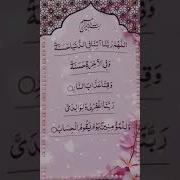 اَللّٰهُمَّ رَبَّنَا اٰتِنَا فِی الدُّنْیَا حَسَنَةً
وَّفِی الْاٰخِرَةِ حَسَنَةً
وَّقِنَا عَذَابَ النَّارِ
رَبَّنَا اغْفِرْ لِیْ وَلِوَالِدَیَّ
وَلِلْمُؤْمِنِیْنَ یَوْمَ یَقُوْمُ الْحِسَابُ